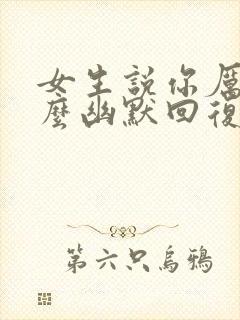 女生說你厲
麼幽默回復
第六只烏鴉